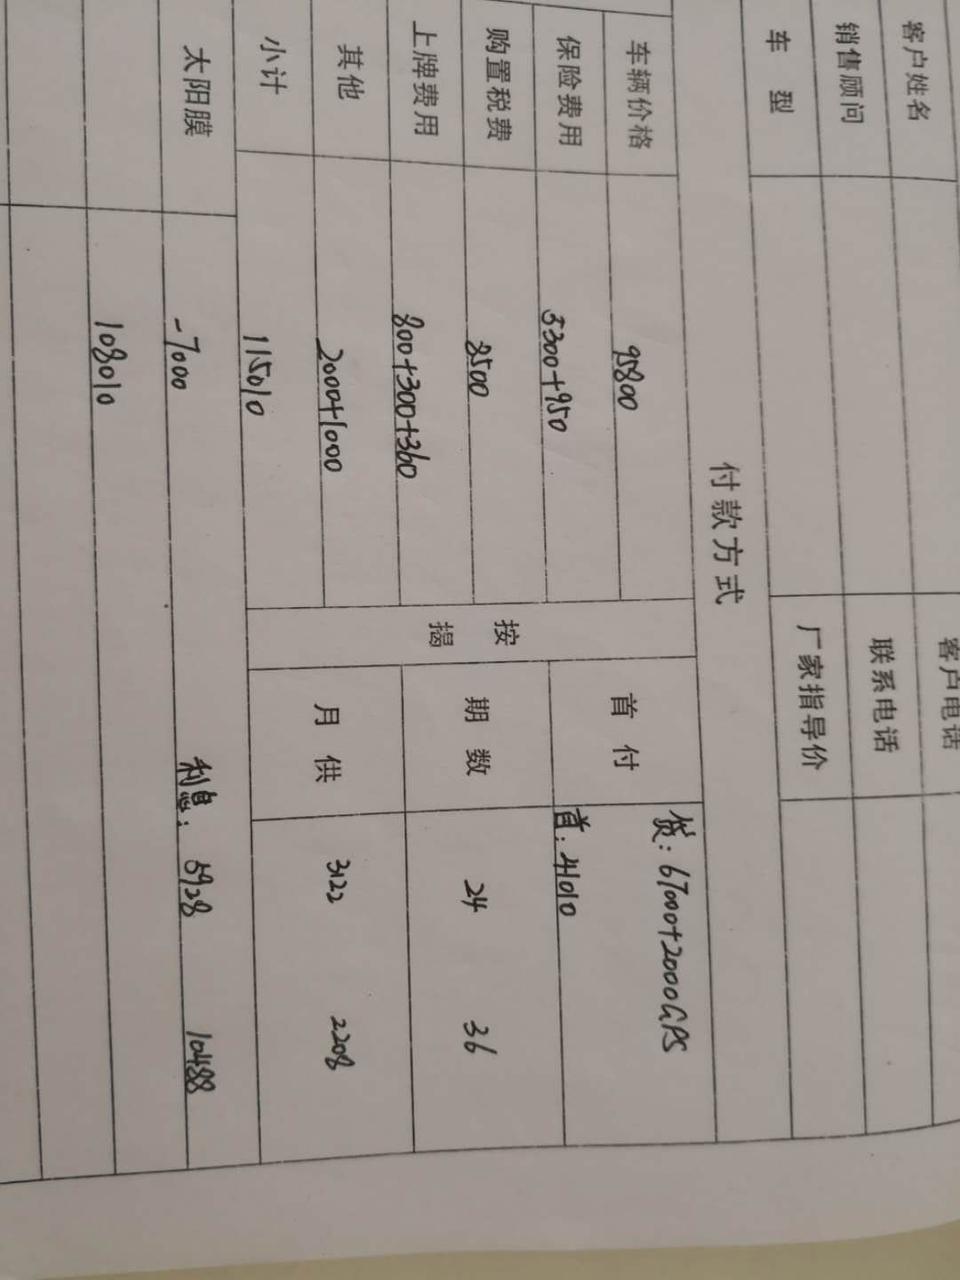 客户姓名 客户电话
销售顾问 联系电话
车 型 厂家指导价
付款方式
车辆价格 95800 按揭 首 付 贷：67000+2000GPS
保险费用 5300+950 首：41010
购置税费 8500 期 数 24 36
上牌费用 800+300+360
其他 2000+1000 月 供 3122 2208
小计 115010
太阳膜 -7000 利息：5928 10488
108010